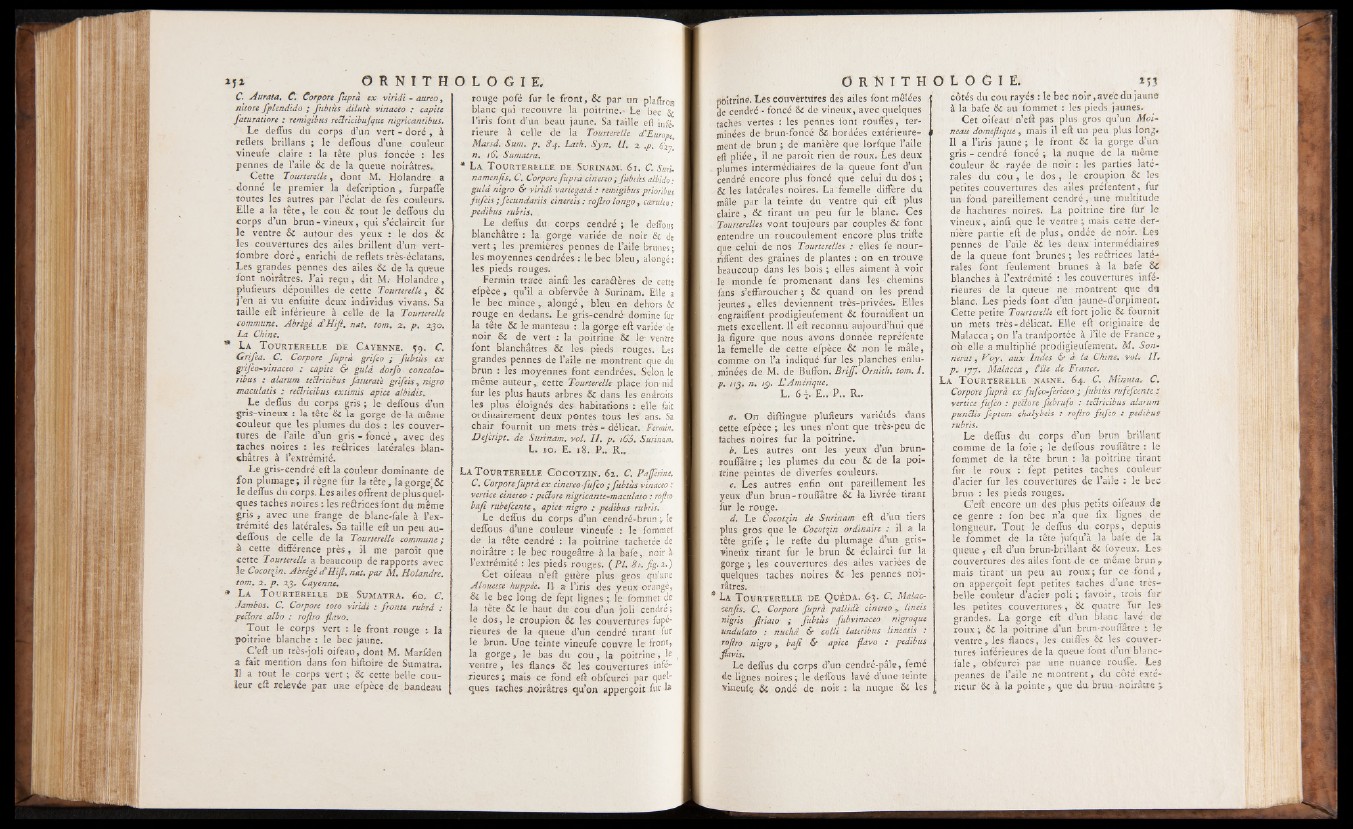 252 ORNITHOLOGIE.
C. Aurata. C. Corpore ſuprà ex viridi-aureo,
nitore ſplendido ; ſubtùs dilutè vinaceo : capite
ſaturatiore : remigibus rectricibuſque nigricantibus.
Le deſſus du corps d'un vert-doré, à
reflets brillans ; le deſſous d'une couleur
vineuſe claire : la tête plus foncée : les
pennes de l'aîle & de la queue noirâtres.
Cette Tourterelle, dont M. Holandre a
donné le premier la deſcription, ſurpaſſe
toutes les autres par l'éclat de ſes couleurs.
Elle a la tête, le cou & tout le deſſous du
corps d'un brun-vineux, qui s'éclaircit ſur
le ventre & autour des yeux : le dos &
les couvertures des aîles brillent d'un vert-
ſombre doré, enrichi de reflets très-éclatans.
Les grandes pennes des aîles & de la queue
ſont noirâtres. J'ai reçu, dit M. Holandre,
pluſieurs dépouilles de cette Tourterelle, &
j'en ai vu enſuite deux individus vivans. Sa
taille eſt inférieure à celle de la Tourterelle
commune. Abrégé d'Hiſt. nat. tom. 2. p. 230.
La Chine.
* LA TOURTERELLE DE CAYENNE. 59. C.
Griſea. C. Corpore ſuprà griſeo ; ſubtùs ex
griſeo-vinaceo : capite & gulâ dorſo concolo-
ribus : alarum tectricibus ſaturatè griſeis, nigro
maculatis : rectricibus extimis apice albidis.
Le deſſus du corps gris ; le deſſous d'un
gris-vineux : la tête & la gorge de la même
couleur que les plumes du dos : les couver-
tures de l'aîle d'un gris-foncé, avec des
taches noires : les rectrices latérales blan-
châtres à l'extrémité.
Le gris-cendré eſt la couleur dominante de
ſon plumage ; il règne ſur la tête, la gorge, &
le deſſus du corps. Les aîles offrent de plus quel-
ques taches noires : les rectrices ſont du même
gris, avec une frange de blanc-ſale à l'ex-
trémité des latérales. Sa taille eſt un peu au-
deſſous de celle de la Tourterelle commune ;
à cette différence près, il me paroît que
cette Tourterelle a beaucoup de rapports avec
le Cocotzin. Abrégé d'Hiſt. nat. par M. Holandre.
tom. 2. p. 23. Cayenne.
* LA TOURTERELLE DE SUMATRA. 60. C.
Jambos. C. Corpore toto viridi : fronte rubrâ :
pectore albo : roſtro flavo.
Tout le corps vert : le front rouge : la
poitrine blanche : le bec jaune.
C'eſt un très-joli oiſeau, dont M. Marſden
a fait mention dans ſon hiſtoire de Sumatra.
Il a tout le corps vert ; & cette belle cou-
leur eſt relevée par une eſpèce de bandeau
rouge poſé ſur le front, & par un plaſtron
blanc qui recouvre la poitrine. Le bec &
l'iris ſont d'un beau jaune. Sa taille eſt infé-
rieure à celle de la Tourterelle d'Europe.
Marsd. Sum. p. 84. Lath. Syn. II. 2. p. 627.
n. 16. Sumatra.
* LA TOURTERELLE DE SURINAM. 61. C. Suri-
namenſis. C. Corpore ſupra cinereo ; ſubtùs albido :
gulâ nigro & viridi variegatâ : remigibus prioribus
fuſcis ; ſecundariis cinereis : roſtro longo, cæruleo :
pedibus rubris.
Le deſſus du corps cendré ; le deſſous
blanchâtre : la gorge variée de noir & de
vert ; les premières pennes de l'aîle brunes ;
les moyennes cendrées : le bec bleu, alongé :
les pieds rouges.
Fermin trace ainſi les caractères de cette
eſpèce, qu'il a obſervée à Surinam. Elle a
le bec mince, alongé, bleu en dehors &
rouge en dedans. Le gris-cendré domine ſur
la tête & le manteau : la gorge eſt variée de
noir & de vert : la poitrine & le ventre
ſont blanchâtres & les pieds rouges. Les
grandes pennes de l'aîle ne montrent que du
brun : les moyennes ſont cendrées. Selon le
même auteur, cette Tourterelle place ſon nid
ſur les plus hauts arbres & dans les endroits
les plus éloignés des habitations : elle fait
ordinairement deux pontes tous les ans. Sa
chair fournit un mets très-délicat. Fermin.
Deſcript. de Surinam. vol. II. p. 163. Surinam.
L. 10. E. 18. P.. R..
LA TOURTERELLE COCOTZIN. 62. C. Paſſerina.
C. Corpore ſuprà ex cinereo-fuſco ; ſubtùs vinaceo :
vertice cinereo : pectore nigricante-maculato : roſtro
baſi rubeſcente, apice nigro : pedibus rubris.
Le deſſus du corps d'un cendré-brun ; le
deſſous d'une couleur vineuſe : le ſommet
de la tête cendré : la poitrine tachetée de
noirâtre : le bec rougeâtre à la baſe, noir à
l'extrémité : les pieds rouges. (Pl. 81. fig. 2.)
Cet oiſeau n'eſt guère plus gros qu'une
Alouette huppée. Il a l'iris des yeux orangé,
& le bec long de ſept lignes ; le ſommet de
la tête & le haut du cou d'un joli cendré ;
le dos, le croupion & les couvertures ſupé-
rieures de la queue d'un cendré tirant ſur
le brun. Une teinte vineuſe couvre le front,
la gorge, le bas du cou, la poitrine, le
ventre, les flancs & les couvertures infé-
rieures ; mais ce fond eſt obſcurci par quel-
ques taches noirâtres qu'on apperçoit ſur la
ORNITHOLOGIE. 253
poitrine. Les couvertures des aîles ſont mêlées
de cendré-foncé & de vineux, avec quelques
taches vertes : les pennes ſont rouſſes, ter-
minées de brun-foncé & bordées extérieure-
ment de brun ; de manière que lorſque l'aîle
eſt pliée, il ne paroît rien de roux. Les deux
plumes intermédiaires de la queue ſont d'un
cendré encore plus foncé que celui du dos ;
& les latérales noires. La femelle diffère du
mâle par la teinte du ventre qui eſt plus
claire, & tirant un peu ſur le blanc. Ces
Tourterelles vont toujours par couples & font
entendre un roucoulement encore plus triſte
que celui de nos Tourterelles : elles ſe nour-
riſſent des graines de plantes : on en trouve
beaucoup dans les bois ; elles aiment à voir
le monde ſe promenant dans les chemins
ſans s'effaroucher ; & quand on les prend
jeunes, elles deviennent très-privées. Elles
engraiſſent prodigieuſement & fourniſſent un
mets excellent. Il eſt reconnu aujourd'hui que
la figure que nous avons donnée repréſente
la femelle de cette eſpèce & non le mâle,
comme on l'a indiqué ſur les planches enlu-
minées de M. de Buffon. Briſſ. Ornith. tom. I.
p. 113. n. 19. L'Amérique.
L. 6 ½. E.. P.. R..
a. On diſtingue pluſieurs variétés dans
cette eſpèce ; les unes n'ont que très-peu de
taches noires ſur la poitrine.
b. Les autres ont les yeux d'un brun-
rouſſâtre ; les plumes du cou & de la poi-
trine peintes de diverſes couleurs.
c. Les autres enfin ont pareillement les
yeux d'un brun-rouſſâtre & la livrée tirant
ſur le rouge.
d. Le Cocotzin de Surinam eſt d'un tiers
plus gros que le Cocotzin ordinaire : il a la
tête griſe ; le reſte du plumage d'un gris-
vineux tirant ſur le brun & éclairci ſur la
gorge ; les couvertures des aîles variées de
quelques taches noires & les pennes noi-
râtres.
* LA TOURTERELLE DE QUÉDA. 63. C. Malac-
cenſis. C. Corpore ſuprà pallidè cinereo, lineis
nigris ſtriato ; ſubtùs ſubvinaceo nigroque
undulato : nuchâ & colli lateribus lineatis :
roſtro nigro, baſi & apice flavo : pedibus
flavis.
Le deſſus du corps d'un cendré-pâle, ſemé
de lignes noires ; le deſſous lavé d'une teinte
vineuſe & ondé de noir : la nuque & les
côtés du cou rayés : le bec noir, avec du jaune
à la baſe & au ſommet : les pieds jaunes.
Cet oiſeau n'eſt pas plus gros qu'un Moi-
neau domeſtique, mais il eſt un peu plus long.
Il a l'iris jaune ; le front & la gorge d'un
gris-cendré foncé ; la nuque de la même
couleur & rayée de noir : les parties laté-
rales du cou, le dos, le croupion & les
petites couvertures des aîles préſentent, ſur
un fond pareillement cendré, une multitude
de hachures noires. La poitrine tire ſur le
vineux, ainſi que le ventre ; mais cette der-
nière partie eſt de plus, ondée de noir. Les
pennes de l'aîle & les deux intermédiaires
de la queue ſont brunes ; les rectrices laté-
rales ſont ſeulement brunes à la baſe &
blanches à l'extrémité : les couvertures infé-
rieures de la queue ne montrent que du
blanc. Les pieds ſont d'un jaune-d'orpiment.
Cette petite Tourterelle eſt fort jolie & fournit
un mets très-délicat. Elle eſt originaire de
Malacca ; on l'a tranſportée à l'île de France,
où elle a multiplié prodigieuſement. M. Son-
nerat, Voy. aux Indes & à la Chine. vol. II.
p. 177. Malacca, l'île de France.
LA TOURTERELLE NAINE. 64. C. Minuta. C.
Corpore ſuprà ex fuſco-ſericeo ; ſubtùs rufeſcente :
vertice fuſco : pectore ſubrufo : tectricibus alarum
punctis ſeptem chalybeis : roſtro fuſco : pedibus
rubris.
Le deſſus du corps d'un brun brillant
comme de la ſoie ; le deſſous rouſſâtre : le
ſommet de la tête brun : la poitrine tirant
ſur le roux : ſept petites taches couleur
d'acier ſur les couvertures de l'aîle : le bec
brun : les pieds rouges.
C'eſt encore un des plus petits oiſeaux de
ce genre : ſon bec n'a que ſix lignes de
longueur. Tout le deſſus du corps, depuis
le ſommet de la tête juſqu'à la baſe de la
queue, eſt d'un brun-brillant & ſoyeux. Les
couvertures des aîles ſont de ce même brun,
mais tirant un peu au roux ; ſur ce fond,
on apperçoit ſept petites taches d'une très-
belle couleur d'acier poli ; ſavoir, trois ſur
les petites couvertures, & quatre ſur les
grandes. La gorge eſt d'un blanc lavé de
roux ; & la poitrine d'un brun-rouſſâtre : le
ventre, les flancs, les cuiſſes & les couver-
tures inférieures de la queue ſont d'un blanc-
ſale, obſcurci par une nuance rouſſe. Les
pennes de l'aîle ne montrent, du côté exté-
rieur & à la pointe, que du brun-noirâtre ;